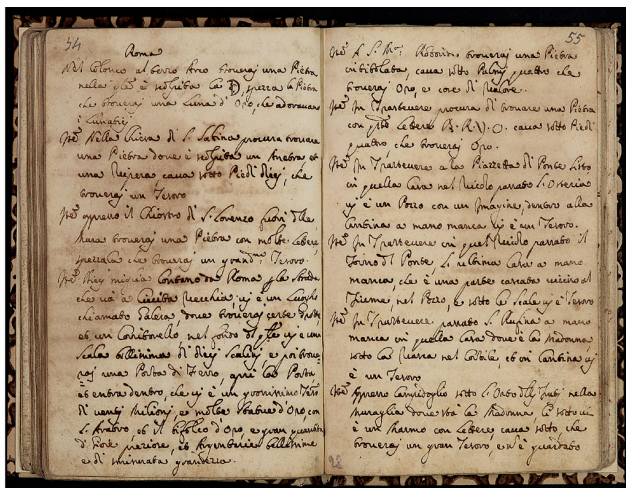 54
Roma
Nel Coloneo al terzo Arco troveraj una Pietra
nella q.le è scolpita la D, spezza la Pietra
che troveraj una Luna d'Oro, che adoravano
i Lunatici
Nella Chiesa di S. Sabina procura trovare
una Pietra dove è scolpita un et
una cava sotto Piedi dieci, che
troveraj un Tesoro
appresso il Chiostro di S. Lorenzo fuori delle
Mura troveraj una Pietra con molte Lettere,
spezzala che troveraj un grand.mo Tesoro
Dieci miglia Lontano da Roma p la strada
che va a Civita Vecchia, vj è un Luogho
chiamato Galera, dove troveraj certe
et un nel fondo del vj è una
Scala bellissima di dieci Scalinj, e poi trove-
raj una Porta di Ferro, apri la Porta
et entra dentro, che vj è un grossissimo Tesoro
di venti Milionj, e molte Statue d'Oro, con
S. et il d'Oro, e gran quantità
di Pietre preziose, et Argenterie bellissime
e di sminurata grandezza.
55
A S. M.a Rotonda troveraj una Pietra
intitolata, cava sotto Palmj quattro che
troveraj Oro, e cose di Valore.
In Trastevere procura di trovare una Pietra
con q.te Lettere cava sotto Piedi
quattro che troveraj Oro.
In Trastevere a la Piazzetta di Ponte Sisto
in quella Casa nel Vicolo passato L'Osteria
vj è un Pozzo con un Imagine, dentro alla
Cantina a mano manca vj è un Tesoro.
In Trastevere in quel Vicolo passato il
Forno di Ponte S. ultima Casa a mano
manca, che è una parte cascata vicino al
Fiume, nel Pozzo, e sotto le Scale vj è Tesoro
In Trastevere passato S. Rufina a mano
manca in quella Casa dove è la Madonna
sotto la nel Cortile, et in Cantina vj
è un Tesoro
Appresso Campidoglio sotto L'Orto delli Frati nella
Muraglia dove stà la Madonna là sotto vi
è un Marmo con Lettere cava sotto che
troveraj un gran Tesoro, e n'è guardato